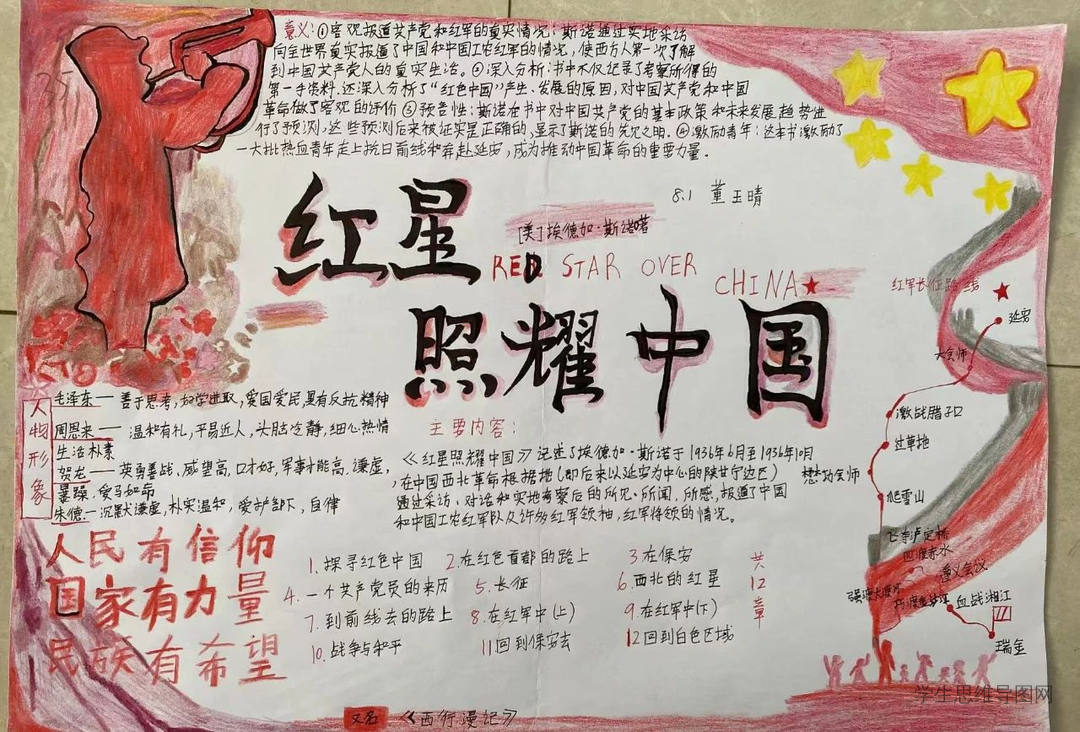 意义:①客观报道共产党和红军的真实情况:斯诺通过实地采访
向全世界真实报道了中国和中国工农红军的情况,使西方人第一次了解
到中国共产党人的真实生活。②深入分析:书中不仅记录了考察所得的
第一手资料,还深入分析了“红色中国”产生、发展的原因,对中国共产党和中国
革命做了客观的评价③预言性:斯诺在书中对中国共产党的基本政策和未来发展趋势进
行了预测,这些预测后来被证实是正确的,显示了斯诺的先见之明。④激励青年:这本书激励了
一大批热血青年走上抗日前线和奔赴延安,成为推动中国革命的重要力量。
8.1 董玉晴
红星
[美]埃德加·斯诺
RED STAR OVER
CHINA
照耀中国
红军长征路线
延安
大会师
激战腊子口
过草地
懋功会师
爬雪山
飞夺泸定桥
四渡赤水
遵义会议
强渡大渡河
巧渡金沙江
血战湘江
瑞金
人物形象
毛泽东—善于思考,好学进取,爱国爱民,具有反抗精神
周恩来— 温和有礼,平易近人,头脑冷静,细心热情
生活朴素
贺龙— 英勇善战,威望高,口才好,军事才能高,谦虚,
暴躁,爱马如命
朱德—沉默谦虚,朴实温和,爱护部下,自律
主要内容:
《红星照耀中国》记述了埃德加·斯诺于1936年6月至1936年10月
,在中国西北革命根据地(即后来以延安为中心的陕甘宁边区)
通过采访、对话和实地考察后的所见、所闻、所感,报道了中国
和中国工农红军队及许多红军领袖,红军将领的情况。
人民有信仰
国家有力量
民族有希望
1.探寻红色中国 2.在红色首都的路上 3在保安
4.一个共产党员的来历 5.长征 6.西北的红星
7.到前线去的路上 8.在红军中(上) 9.在红军中(下)
10.战争与和平 11回到保安去 12回到白色区域
共12章
又名 《西行漫记》
学生思维导图网